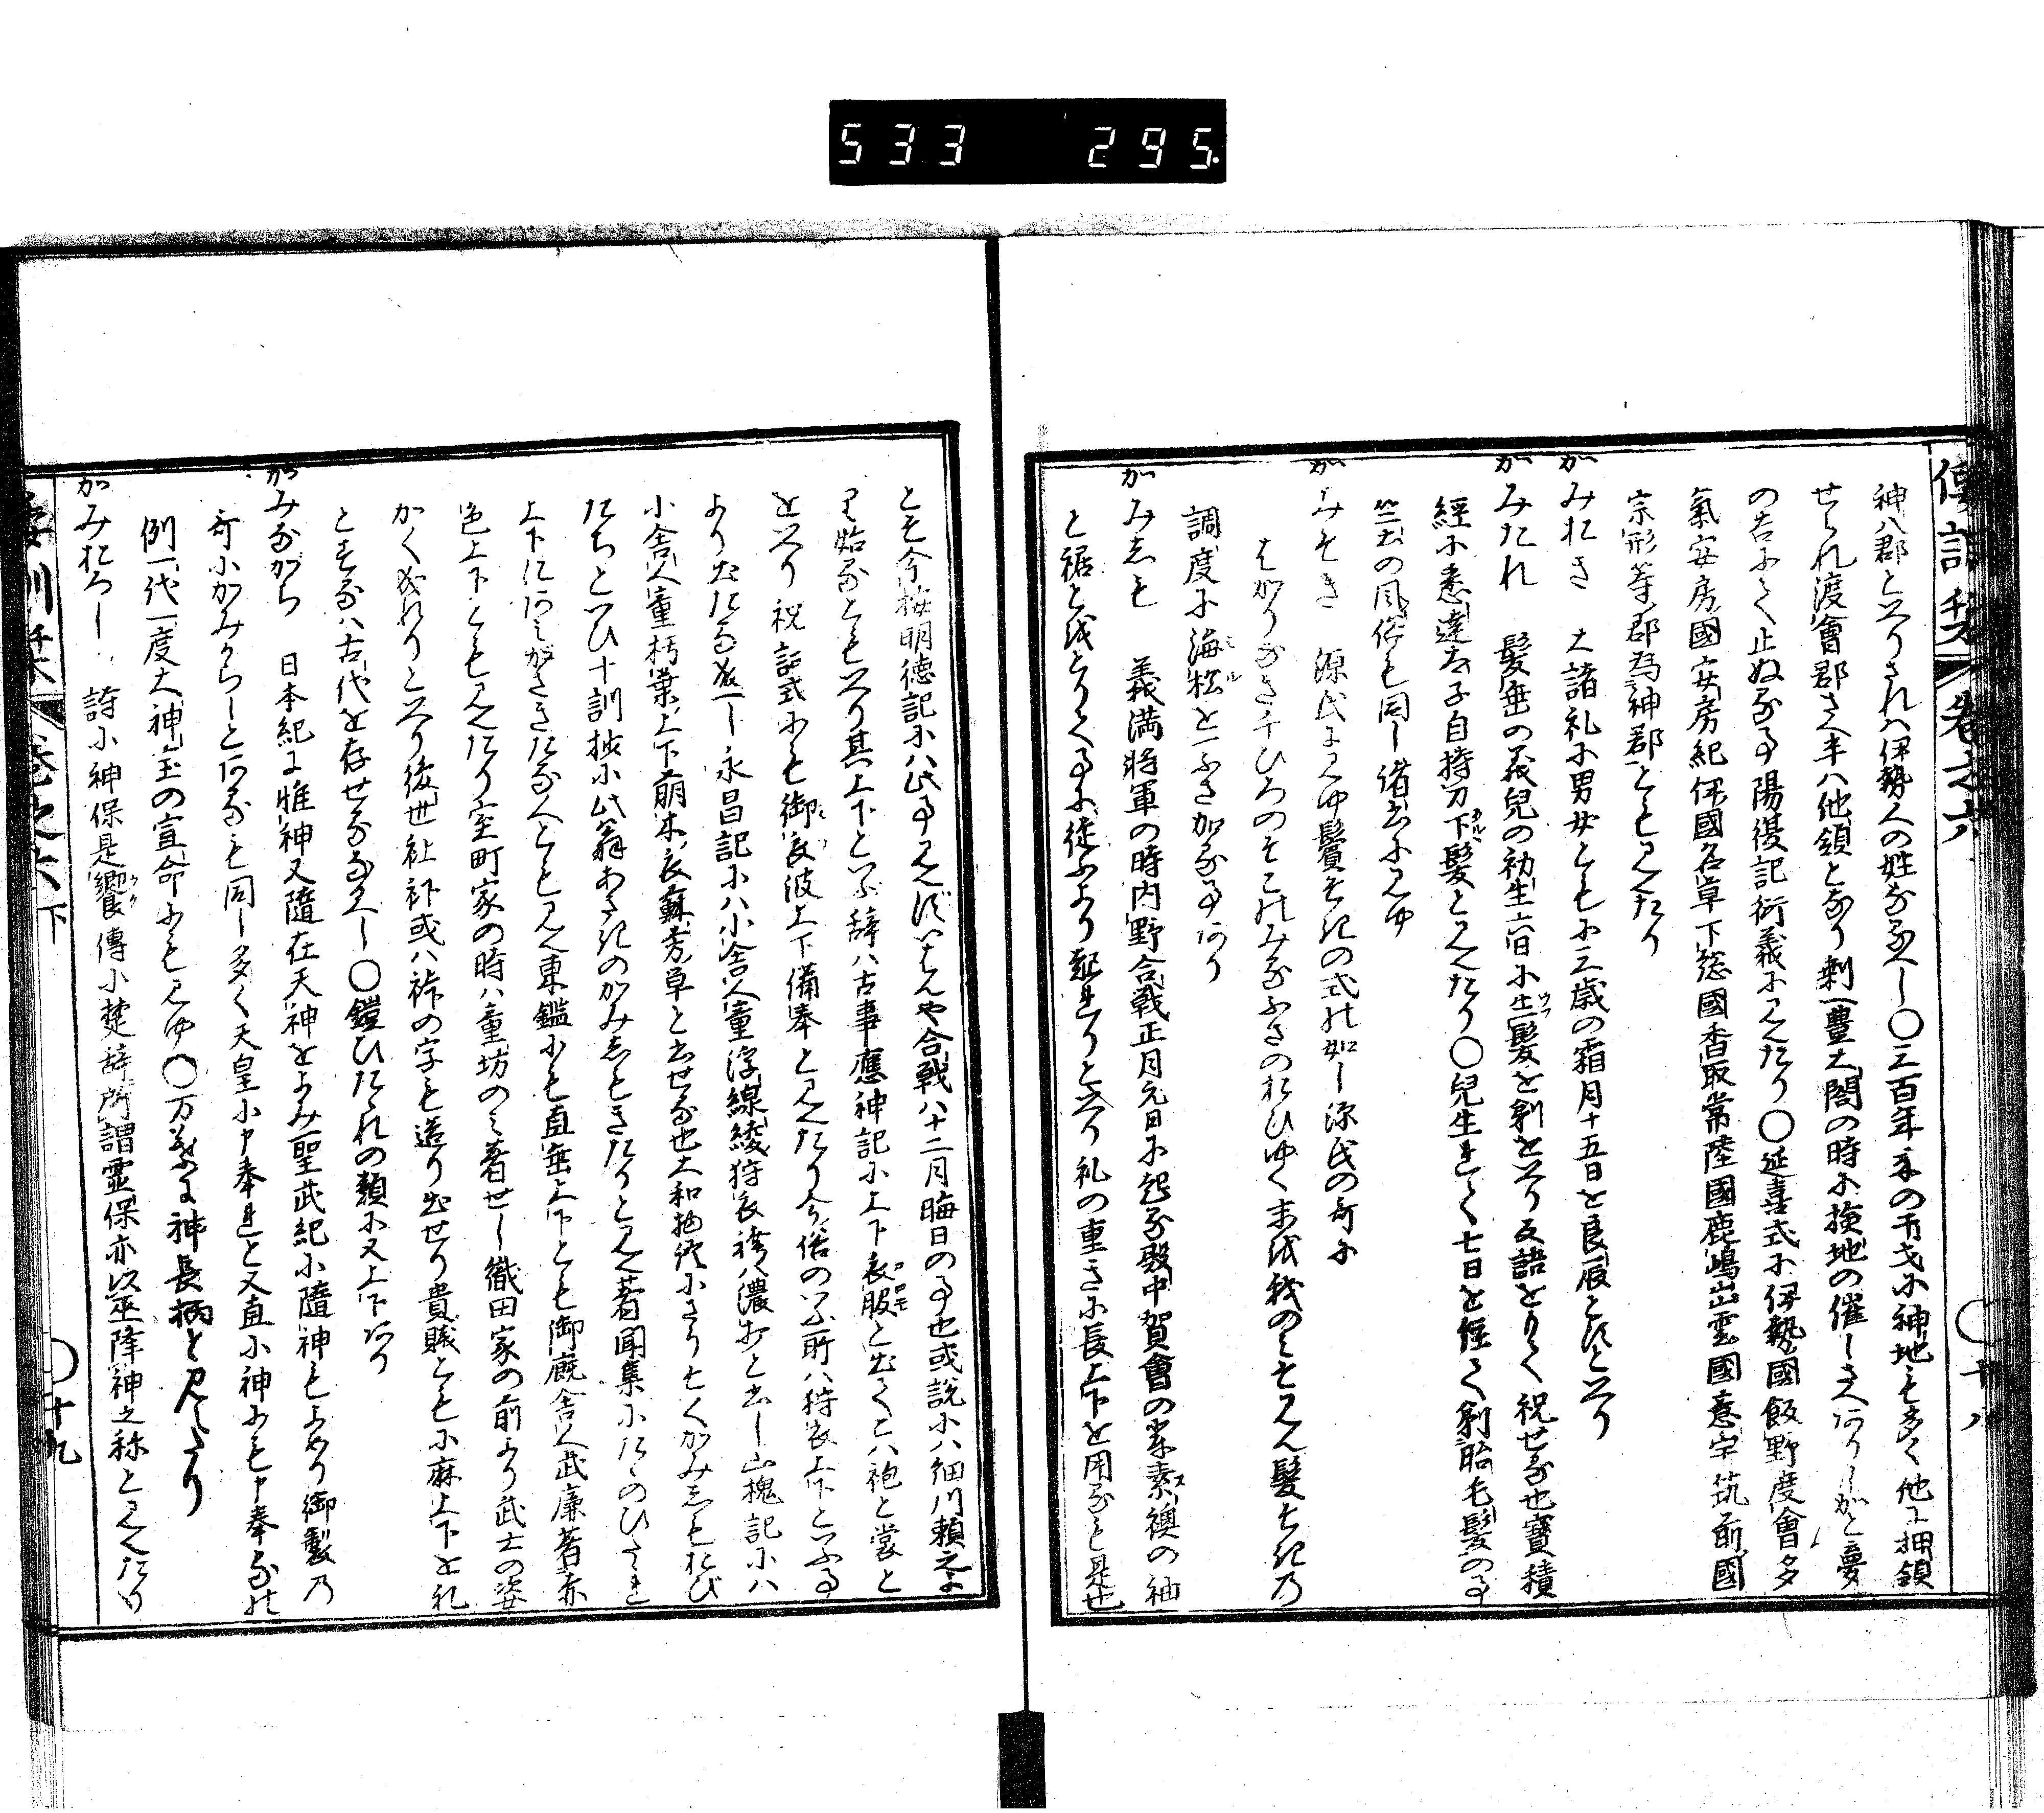 533 295.
神八郡といりされハ伊勢人の姓なるへし○三百年來の市戈に神地も多く他に押領
せられ渡會郡さへ半ハ他領となり剩豊大閤の時に撿地の催しさへありしかと夢
の告にて止ぬる事陽復記衍義に見えたり○延喜式に伊勢國飯野度會多
氣安房國安房紀伊國名草下総國香取常陸國鹿嶋出雲國意宇筑前國
宗形等郡為神郡とも見えたり
かみおき 大諸礼に男女ともに三歳の霜月十五日を良辰とすといり
かみたれ 髪垂の義兒の初生六日に生髪を剃をいり反語をもて祝せる也寶積
經に悉達太子自持刀下髪と見えたり○兒生れて七日を經て剃胎毛髪の事
竺土の風俗も同し諸書に見ゆ
かみそき 源氏に見ゆ鬢そきの式の如し源氏の哥に
はかりなき千ひろのそこのみるふさのおひゆく末は我のみそ見ん髪そきの
調度に海松を一ふさ加る事あり
かみしも 義満將軍の時内野合戰正月元日に起る殿中賀會の輩素襖の袖
と裾とをとりて事に従ふより起れりといり礼の重きに長上下を用るも是也
とそ今按明徳記にハ此事見えすいはんや合戰ハ十二月晦日の事也或説にハ細川頼之よ
り始るともいり其上下といふ辞ハ古事應神記に上下衣服と出てこハ袍と裳と
をいり祝詞式にも御衣波上下備奉と見えたり今俗のいふ所ハ狩衣上下といふ事
より出たる成へし永昌記にハ小舎人童浮線綾狩衣袴ハ濃打と書し山槐記にハ
小舎人童朽葉上下萠木衣蘇芳單と書せる也大和物語にさうそくかみしもおび
たちといひ十訓抄に此翁あさきのかみしもきたりと見え著聞集にはゝのひたゝれ
上下にゑかきたる人とも見え東鑑にも直垂上下とも御廐舎人武廉著赤
色上下とも見えたり室町家の時ハ童坊のミ著せし織田家の前より武士の姿
かく成れりといり後世𧘕𧘔或ハ裃の字も造り出せり貴賎ともに麻上下を礼
とするハ古代を存せるなるへし○鎧ひたゝれの類に又上下あり
かみながら 日本紀に惟神又隨在天神をよみ聖武紀に隨神もよめり御製の
哥にかみからしとあるも同し多く天皇に申奉れと又直に神にも申奉るの
例一代一度大神宝の宣命にも見ゆ○万葉に神長柄と見えたり
かみおろし 詩に神保是饗傳に楚辞所謂靈保亦以巫降神之称と見えたり